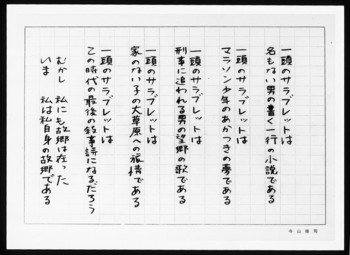 一頭のサラブレットは
名もない男の書く一行の小説である
一頭のサラブレットは
マラソン少年のあかつきの夢である
一頭のサラブレットは
刑事に追われる男の望郷の歌である
一頭のサラブレットは
家のない子の大草原への旅情である
一頭のサラブレットは
この時代の最後の叙事詩になるだろう
むかし 私にも故郷は在った
いま 私は私自身の故郷である